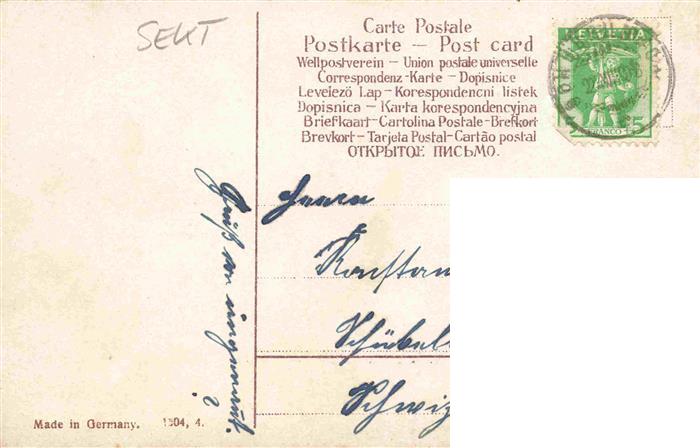 SEKT
Carte Postale
Postkarte — Post card
Weltpostverein — Union postale universelle
Correspondenz-Karte — Dopisnice
Levelező Lap — Korespondencni listek
Dopisnica — Karta korespondencyjna
Briefkaart — Cartolina Postale — Brefkort
Brevkort — Tarjeta Postal — Cartão postal
ОТКРЫТОЕ ПИСЬМО.
HELVETIA
5 FRANCO 5
Herrn
Konstan
Schübel
Schwiz
Gruß von ungenannt.
?
Made in Germany. 1504, 4.